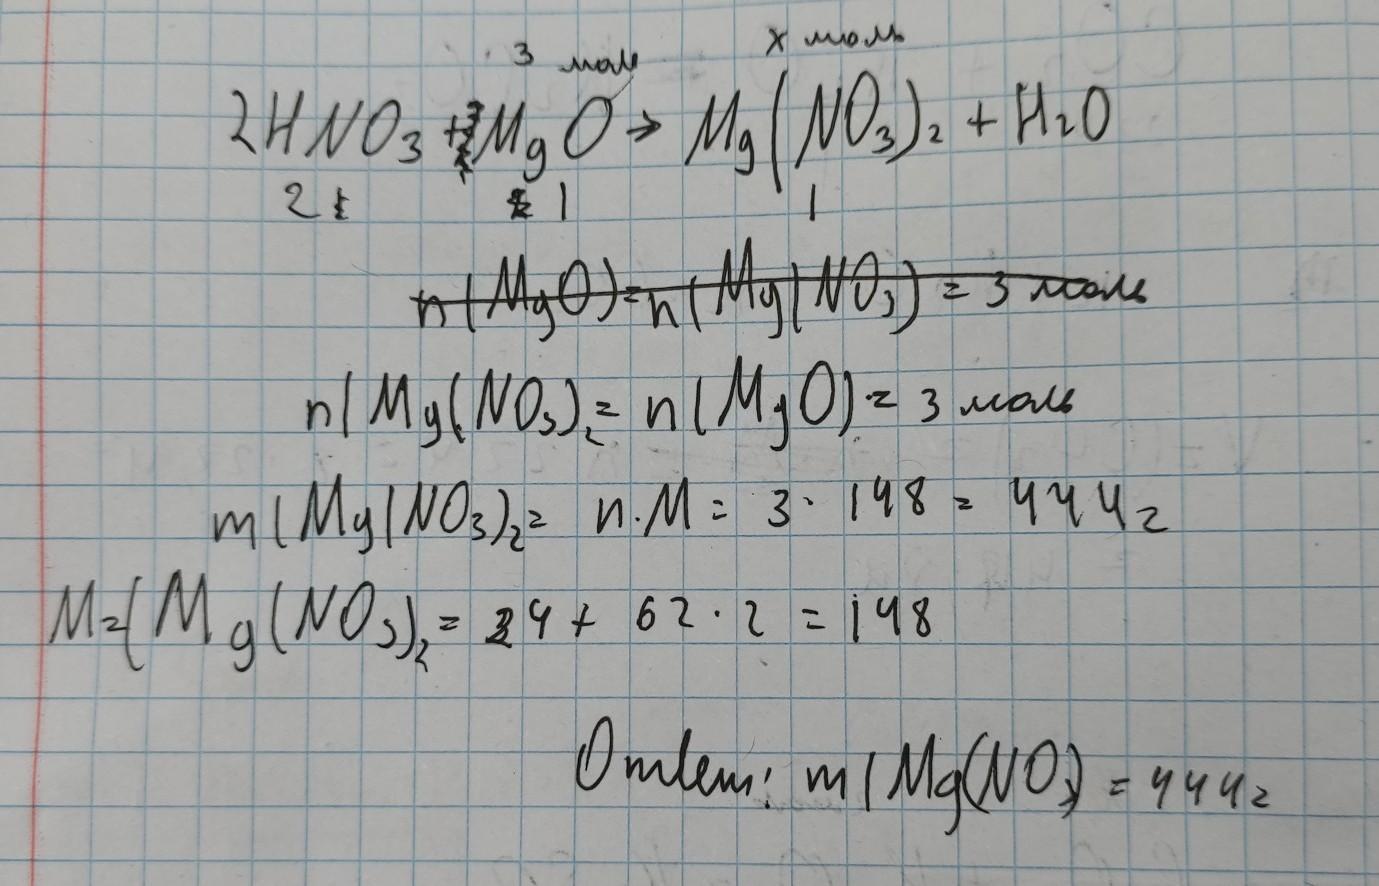 3 моль x моль
2HNO3 + MgO → Mg(NO3)2 + H2O
2 1 1
n(MgO) = n(Mg(NO3) = 3 моль
n(Mg(NO3)2 = n(MgO) = 3 моль
m(Mg(NO3)2 = n·M = 3 · 148 = 444г
M=(Mg(NO3)2 = 24 + 62 · 2 = 148
Ответ: m(Mg(NO3) = 444г